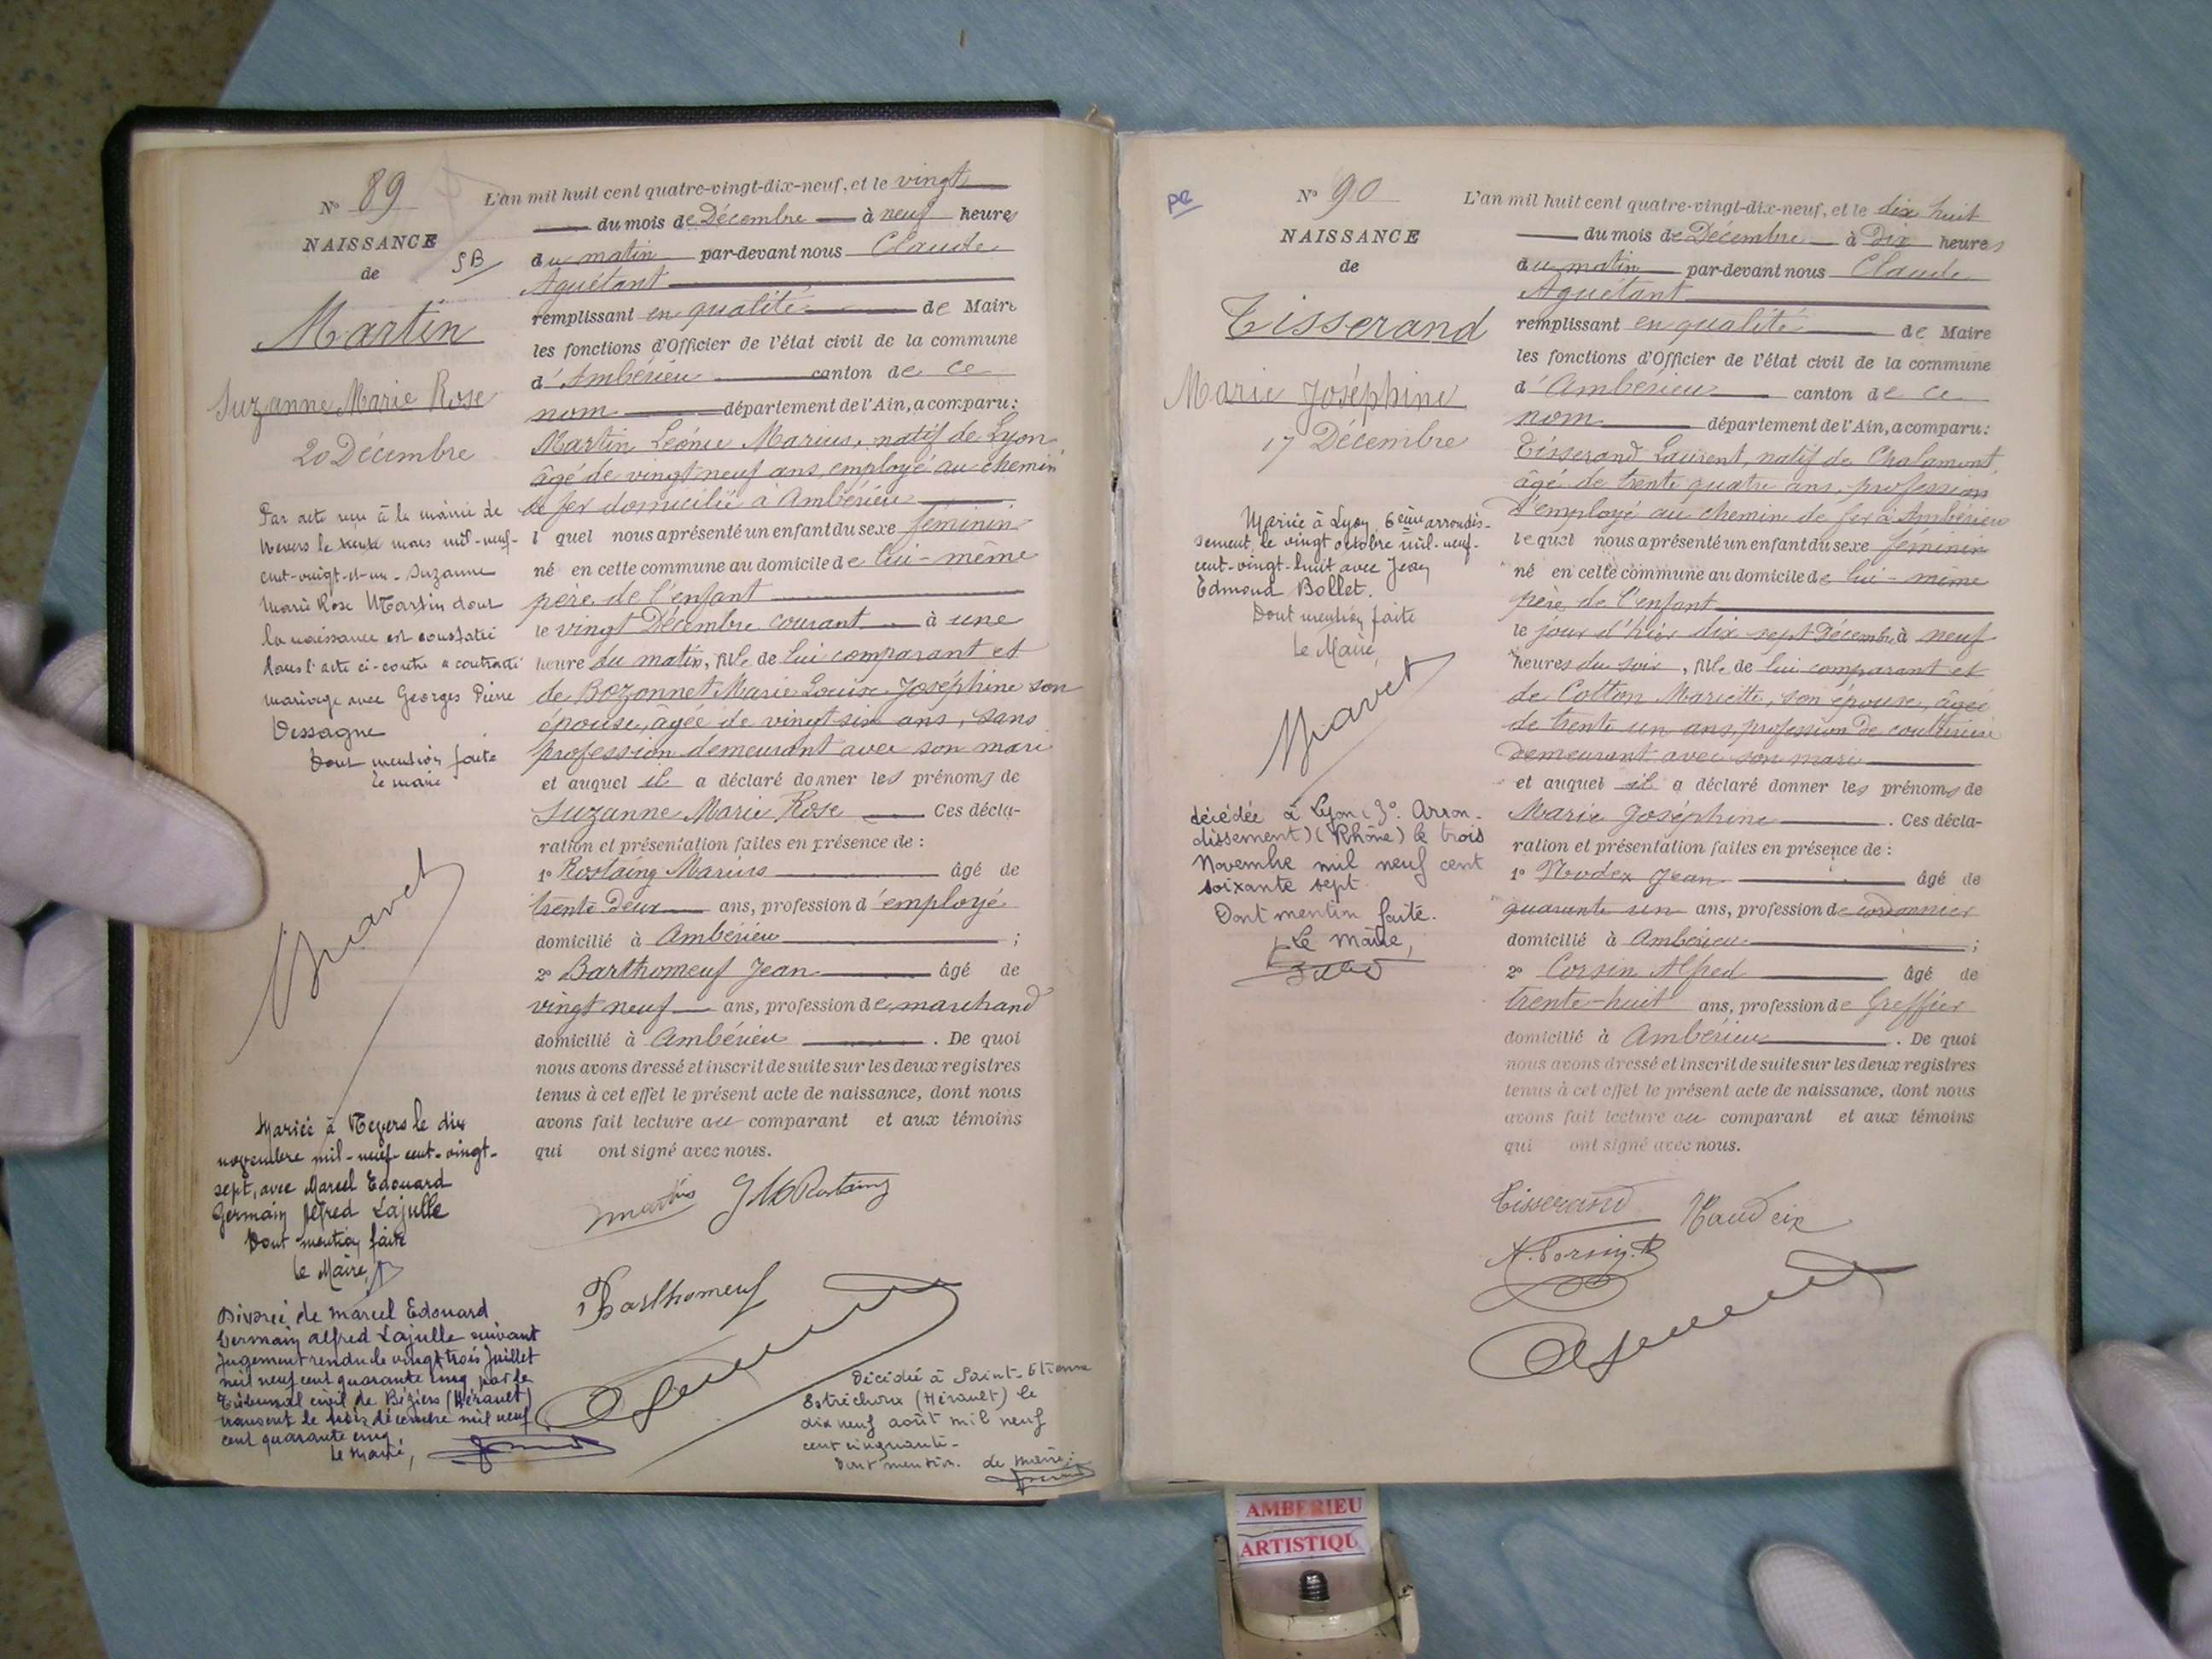 N° 89
NAISSANCE
de
SB
Martin
Suzanne Marie Rose
20 Décembre
Par acte reçu à la mairie de
Nevers le mars mil-neuf-
cent-vingt-et-un - Suzanne
Marie Rose Martin dont
la naissance est constatée
dans l'acte ci-contre a contracté
mariage avec Georges Pierre
Dessagne
Dont mention faite
le maire
Mariée à Nevers le dix
novembre mil-neuf-cent-vingt-
sept, avec Marcel Edouard
Germain Alfred Lajulle
Dont mention faite
le Maire,
Divorcé de Marcel Edouard
Germain Alfred Lajulle suivant
jugement rendu le vingt trois Juillet
mil neuf cent quarante cinq par le
Tribunal civil de Béziers (Hérault)
transcrit le trois décembre mil neuf
cent quarante cinq
le Maire,
L'an mil huit cent quatre-vingt-dix-neuf, et le vingt
du mois de Décembre à neuf heures
du matin par-devant nous Claude
Aguétant
remplissant en qualité de Maire
les fonctions d'Officier de l'état civil de la commune
d'Ambérieu canton de ce
nom département de l'Ain, a comparu :
Martin Léonce Marius, natif de Lyon
âgé de vingt neuf ans, employé au chemin
de fer domicilié à Ambérieu
lequel nous a présenté un enfant du sexe féminin
né en cette commune au domicile de lui-même
père de l'enfant
le vingt Décembre courant à une
heure du matin, fille de lui comparant et
de Bozonnet Marie Louise Joséphine son
épouse, âgée de vingt six ans, sans
profession demeurant avec son mari
et auquel il a déclaré donner les prénoms de
Suzanne Marie Rose Ces décla-
ration et présentation faites en présence de :
1° Rostaing Marius âgé de
trente deux ans, profession d'employé
domicilié à Ambérieu ;
2° Barthomeuf Jean âgé de
vingt neuf ans, profession de marchand
domicilié à Ambérieu . De quoi
nous avons dressé et inscrit de suite sur les deux registres
tenus à cet effet le présent acte de naissance, dont nous
avons fait lecture au comparant et aux témoins
qui ont signé avec nous.
Martin Rostaing
Barthomeuf
Décédée à Saint-Etienne
Estréchoux (Hérault) le
dix neuf août mil neuf
cent cinquante -
Dont mention. le maire :
pe
N° 90
NAISSANCE
de
Tisserand
Marie Joséphine
17 Décembre
Mariée à Lyon, 6ème arrondis-
sement, le vingt octobre mil-neuf-
cent-vingt-huit avec Jean
Edmond Bollet.
Dont mention faite
Le Maire,
décédée à Lyon (3e. Arron-
dissement) (Rhône) le trois
Novembre mil neuf cent
soixante sept.
Dont mention faite.
Le Maire,
L'an mil huit cent quatre-vingt-dix-neuf, et le dix huit
du mois de Décembre à Dix heures
du matin par-devant nous Claude
Aguétant
remplissant en qualité de Maire
les fonctions d'Officier de l'état civil de la commune
d'Ambérieu canton de ce
nom département de l'Ain, a comparu :
Tisserand Laurent, natif de Chalamont,
âgé de trente quatre ans, profession
d'employé au chemin de fer à Ambérieu
lequel nous a présenté un enfant du sexe féminin
né en cette commune au domicile de lui-même
père de l'enfant
le jour d'hier dix sept Décembre à neuf
heures du soir, fille de lui comparant et
de Cotton Mariette, son épouse, âgée
de trente un ans, profession de couturière
demeurant avec son mari
et auquel il a déclaré donner les prénoms de
Marie Joséphine . Ces décla-
ration et présentation faites en présence de :
1° Jean âgé de
quarante un ans, profession de cordonnier
domicilié à Ambérieu ;
2° Corsin Alfred âgé de
trente-huit ans, profession de Greffier
domicilié à Ambérieu . De quoi
nous avons dressé et inscrit de suite sur les deux registres
tenus à cet effet le présent acte de naissance, dont nous
avons fait lecture au comparant et aux témoins
qui ont signé avec nous.
Tisserand
A. Corsin
AMBERIEU
ARTISTIQU